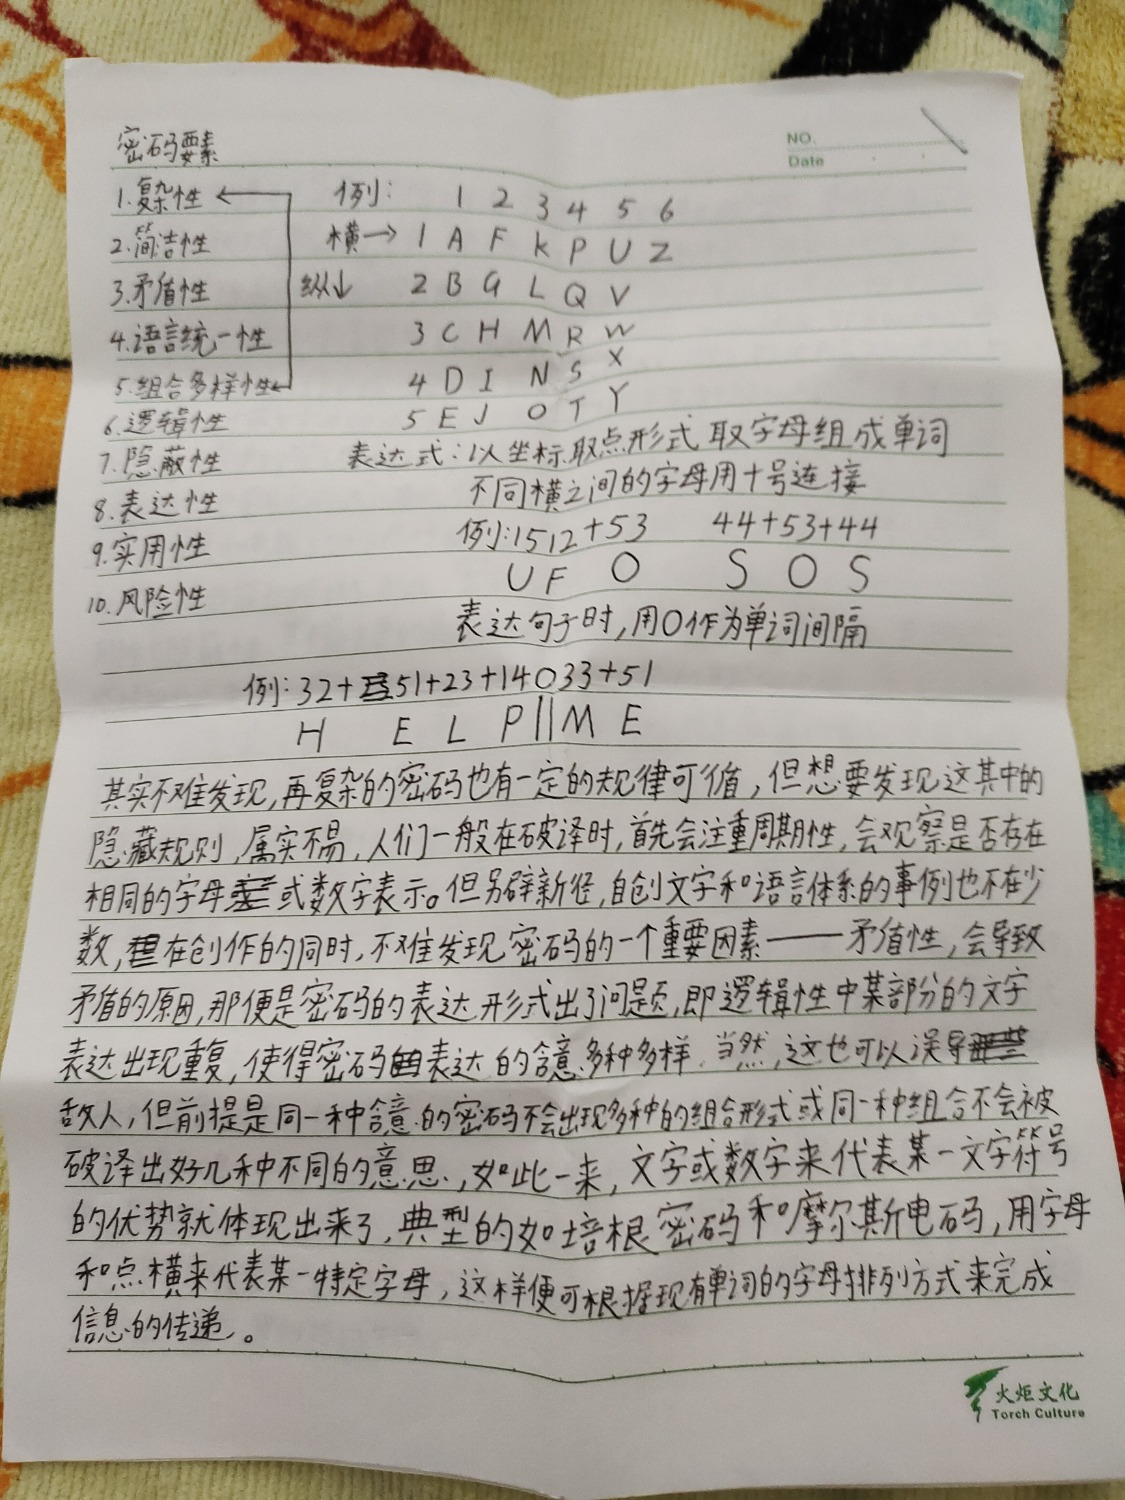 密码要素
NO.
Date
1.复杂性
例: 1 2 3 4 5 6
2.简洁性
横→ 1 A F K P U Z
3.矛盾性
纵↓ 2 B G L Q V
4.语言统一性
3 C H M R W
5.组合多样性
4 D I N S X
6.逻辑性
5 E J O T Y
7.隐蔽性
表达式:以坐标取点形式取字母组成单词
8.表达性
不同横之间的字母用+号连接
9.实用性
例:1512+53 44+53+44
U F O S O S
10.风险性
表达句子时,用0作为单词间隔
例:32+51+23+14033+51
H E L P||M E
其实不难发现,再复杂的密码也有一定的规律可循,但想要发现这其中的
隐藏规则,属实不易,人们一般在破译时,首先会注重周期性,会观察是否存在
相同的字母或数字表示。但另辟新径,自创文字和语言体系的事例也不在少
数,在创作的同时,不难发现密码的一个重要因素——矛盾性,会导致
矛盾的原因,那便是密码的表达形式出了问题,即逻辑性中某部分的文字
表达出现重复,使得密码表达的含意多种多样.当然,这也可以误导
敌人,但前提是同一种含意的密码不会出现多种的组合形式或同一种组合不会被
破译出好几种不同的意思,如此一来,文字或数字来代表某一文字符号
的优势就体现出来了,典型的如培根密码和摩尔斯电码,用字母
和点横来代表某一特定字母,这样便可根据现有单词的字母排列方式来完成
信息的传递。
火炬文化
Torch Culture